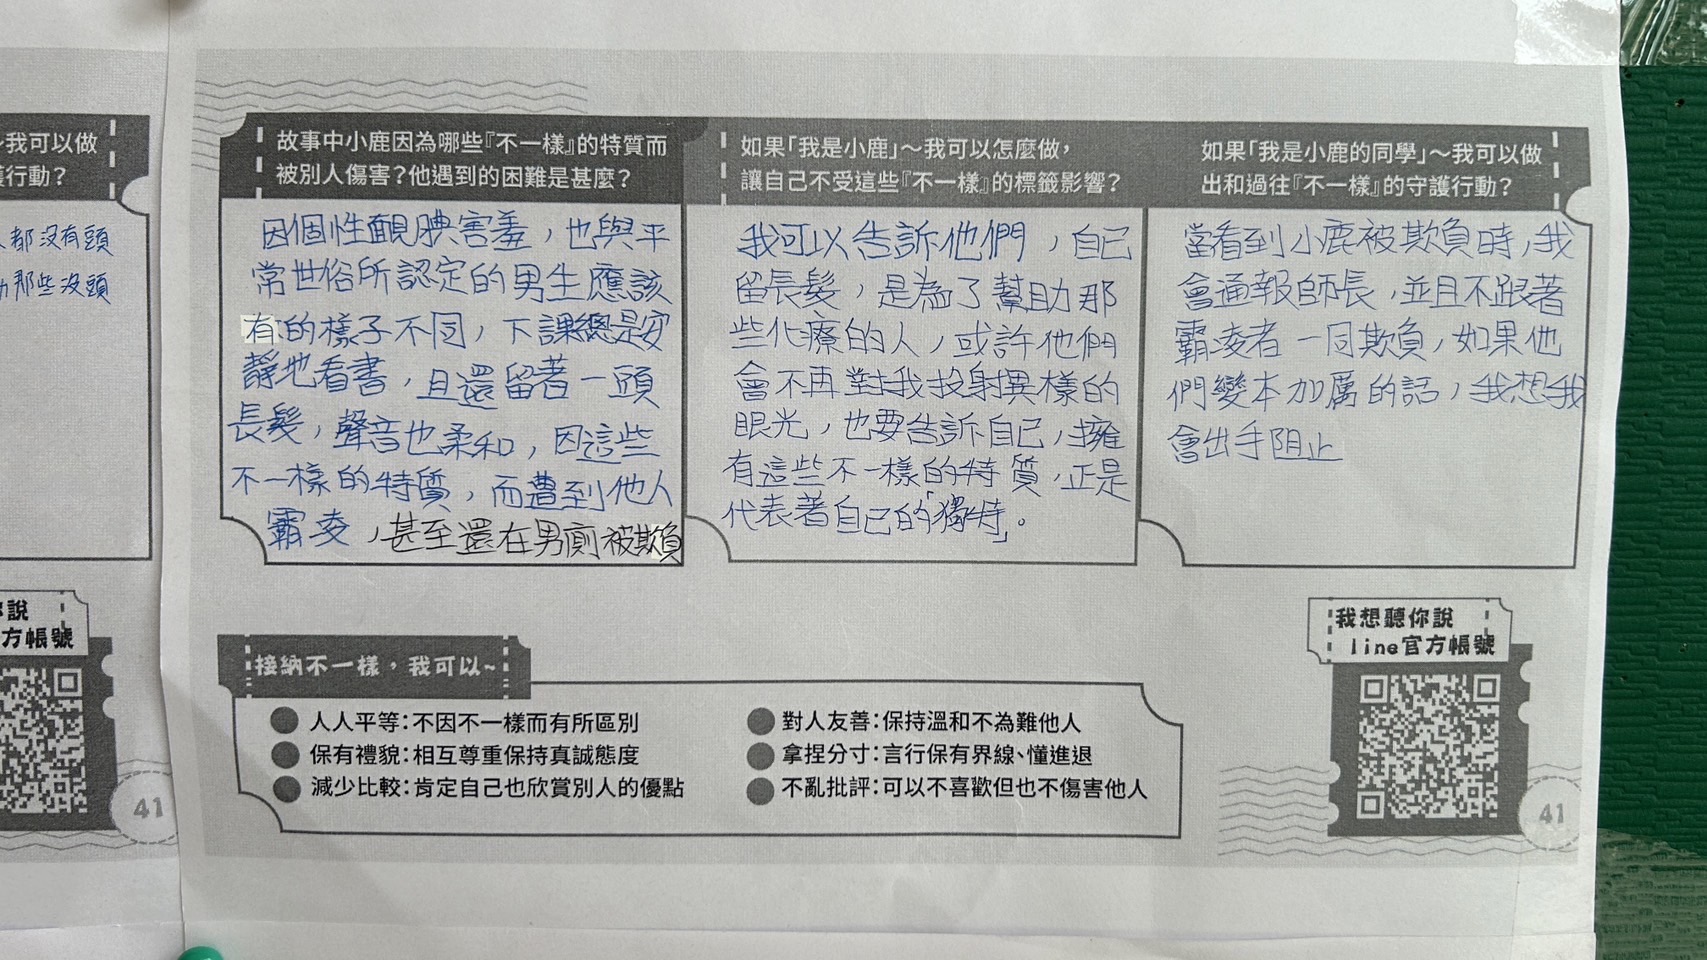 ～我可以做
行動？
都沒有頭
那些沒頭
說
方帳號
41
故事中小鹿因為哪些『不一樣』的特質而
被別人傷害？他遇到的困難是甚麼？
因個性靦腆害羞，也與平
常世俗所認定的男生應該
有的樣子不同，下課總是安
靜地看書，且還留著一頭
長髮，聲音也柔和，因這些
不一樣的特質，而遭到他人
霸凌，甚至還在男廁被欺負
如果「我是小鹿」～我可以怎麼做，
讓自己不受這些『不一樣』的標籤影響？
我可以告訴他們，自己
留長髮，是為了幫助那
些化療的人，或許他們
會不再對我投射異樣的
眼光，也要告訴自己，擁
有這些不一樣的特質，正是
代表著自己的「獨特」。
如果「我是小鹿的同學」～我可以做
出和過往『不一樣』的守護行動？
當看到小鹿被欺負時，我
會通報師長，並且不跟著
霸凌者一同欺負，如果他
們變本加厲的話，我想我
會出手阻止
接納不一樣，我可以~
人人平等：不因不一樣而有所區別
保有禮貌：相互尊重保持真誠態度
減少比較：肯定自己也欣賞別人的優點
對人友善：保持溫和不為難他人
拿捏分寸：言行保有界線、懂進退
不亂批評：可以不喜歡但也不傷害他人
我想聽你說
line官方帳號
41